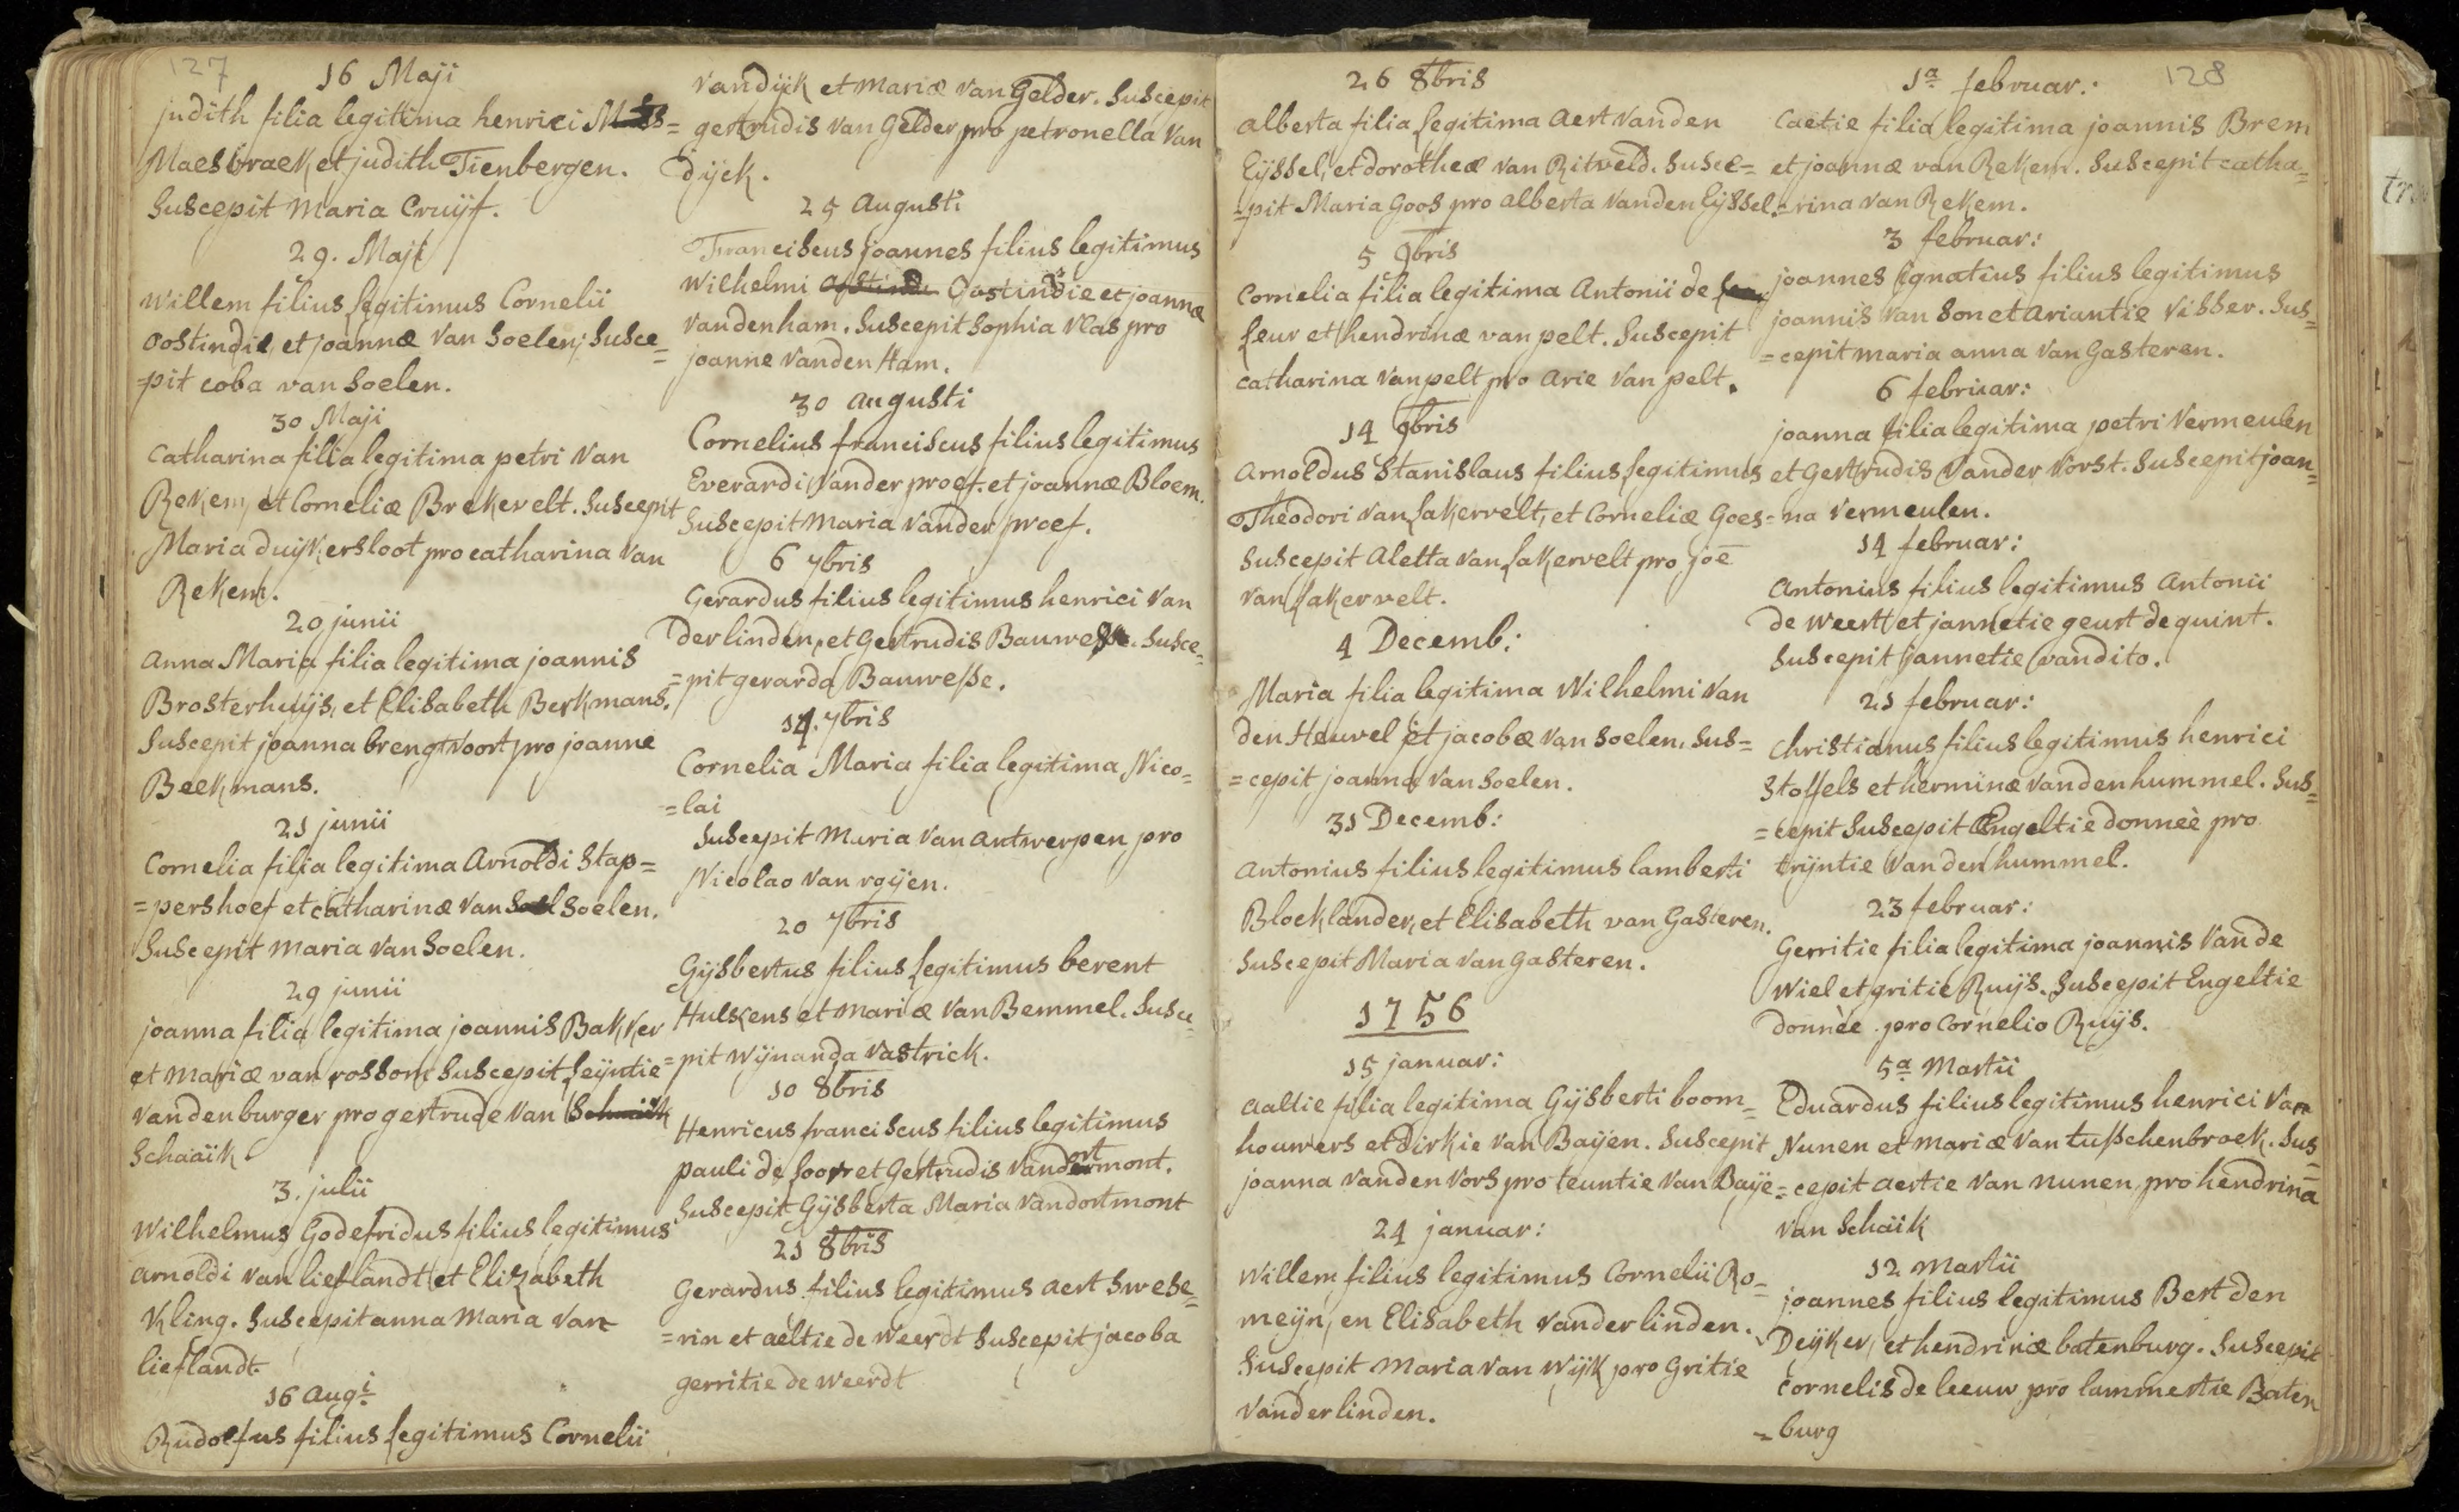 127
16 Maji
judith filia legitima henrici
Maesbraek et judith Tienbergen.
Suscepit Maria Cruijf.
29. Maji
Willem filius legitimus Cornelii
Oostindie, et joannæ Van Soelen, Susce=
=pit coba van Soelen.
30 Maji
Catharina filia legitima petri Van
Rekem, et Corneliæ Brekevelt. Suscepit
Maria duijkersloot pro catharina Van
Rekem.
20 junii
Anna Maria filia legitima joannis
Brosterhuijs, et Elisabeth Berkmans.
Suscepit joanna brengtvoort pro joanne
Beekmans.
21 junii
Cornelia filia legitima Arnoldi Stap=
=pershoef et catharinæ Van Soelen.
Suscepit Maria Van Soelen.
29 junii
joanna filia legitima joannis Bakker
et Mariæ van rossom Suscepit Leijntie
Vandenburger pro gertrude Van Schaaik
Schaaik
3. julii
Wilhelmus Godefridus filius legitimus
Arnoldi Van lieflandt et Elizabeth
Kling. Suscepit anna Maria Van
lieflandt.
16 augi
Rudolfus filius legitimus Cornelii
Vandijck et Mariæ van Gelder. Suscepit
gertrudis Van Gelder pro petronella Van
dijck.
25 Augusti
Franciscus joannes filius legitimus
Wilhelmi Oostindie et joannæ
Vandenham. Suscepit Sophia Vlas pro
joanne Vanden Ham.
30 augusti
Cornelius franciscus filius legitimus
Everardi Vander proef. et joannæ Bloem.
Suscepit Maria Vander proef.
6 7bris
Gerardus filius legitimus henrici Van
der linden, et Gertrudis Bauwesse. Susce=
=pit gerarda Bauwesse.
14. 7bris
Cornelia Maria filia legitima Nico=
=lai
Suscepit Maria Van Antwerpen pro
Nicolao Van roijen.
20 7bris
Gijsbertus filius legitimus berent
Hulskens et Mariæ Van Bemmel. Susce=
=pit Wijnanda Vastrick.
10 8bris
Henricus franciscus filius legitimus
pauli de Soor et Gertrudis Vandortmont.
Suscepit Gijsberta Maria Vandortmont
21 8bris
Gerardus filius legitimus aert Swese=
=rin et aeltie de Weerdt Suscepit jacoba
gerritie de Weerdt
26 8bris
Alberta filia legitima Aert Vanden
Eijssel, et dorotheæ van Ritveld. Susce=
=pit Maria Goos pro Alberta Vanden Eijssel.
5 9bris
Cornelia filia legitima Antonii de
Leur et hendrinæ van pelt. Suscepit
catharina Van pelt pro Arie Van pelt.
14 9bris
Arnoldus Stanislaus filius legitimus
Theodori Van Lakervelt, et Corneliæ Goes=
Suscepit Aletta Van Lakervelt pro joē
Van Lakervelt.
4 Decemb:
Maria filia legitima Wilhelmi Van
den Heuvel et jacobæ Van Soelen. Sus=
=cepit joanna Van Soelen.
31 Decemb:
Antonius filius legitimus lamberti
Bloeklander, et Elisabeth van Gasteren.
Suscepit Maria Van Gasteren.
1756
15 januar:
Aaltie filia legitima Gijsberti boom=
houwers et Dirkie Van Baijen. Suscepit
joanna Vanden Vors pro teuntie Van Baije=
24 januar:
Willem filius legitimus Cornelii Ro=
meijn, en Elisabeth Vander linden.
Suscepit Maria Van Wijk pro Gritie
Vanderlinden.
128
1a februar:
Caetie filia legitima joannis Brem
et joannæ van Rekem. Suscepit catha=
=rina Van Rekem.
3 februar:
joannes ignatius filius legitimus
joannis Van Son et Ariantie Visser. Sus=
=cepit maria anna Van Gasteren.
6 februar:
joanna filia legitima petri Vermeulen
et Gertrudis Vander Vorst. Suscepit joan=
=na Vermeulen.
14 februar:
Antonius filius legitimus Antonii
de Weert et jannetie geurt de quint.
Suscepit jannetie Vandito.
21 februar:
Christianus filius legitimus henrici
Stoffels et herminæ Vandenhummel. Sus=
=cepit Suscepit Engeltie donneè pro
trijntie Vanden hummel.
23 februar:
Gerritie filia legitima joannis Van de
Wiel et gritie Ruijs. Suscepit Engeltie
donnèe pro Cornelio Ruijs.
5a Martii
Eduardus filius legitimus henrici Van
Nunen et Mariæ Van tusschenbroek. Sus=
=cepit Aertie Van Nunen pro hendrina
Van Schaik
12 Martii
joannes filius legitimus Bert den
Deijker, et hendrinæ batenburg. Suscepit
Cornelis de leeuw pro lammertie Baten
=burg